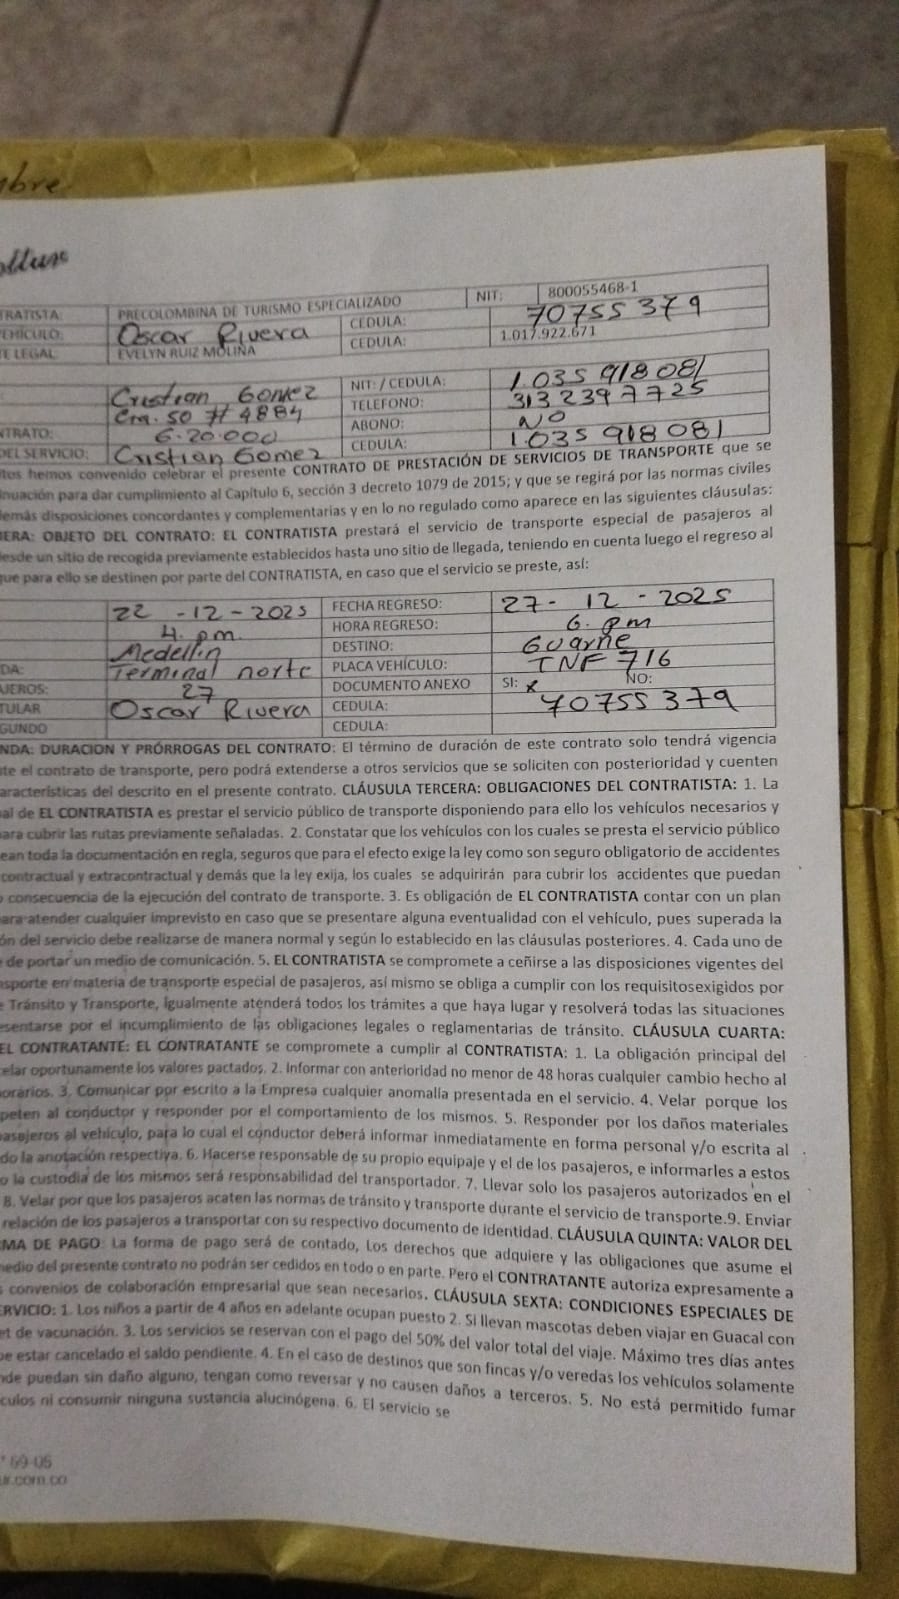 mbre
olltur
TRATISTA: PRECOLOMBINA DE TURISMO ESPECIALIZADO NIT: 800055468-1
EHÍCULO: Oscar Rivera CEDULA: 70755379
TE LEGAL EVELYN RUIZ MOLINA CEDULA: 1.017.922.671
Cristian Gomez NIT: / CEDULA: 1.035 918 081
Cra. 50 # 4884 TELEFONO: 313 239 7725
NTRATO: 6.20.000 ABONO: NO
DEL SERVICIO: Cristian Gomez CEDULA: 1.035 918 081
tos hemos convenido celebrar el presente CONTRATO DE PRESTACIÓN DE SERVICIOS DE TRANSPORTE que se
inuación para dar cumplimiento al Capítulo 6, sección 3 decreto 1079 de 2015; y que se regirá por las normas civiles
emás disposiciones concordantes y complementarias y en lo no regulado como aparece en las siguientes cláusulas:
ERA: OBJETO DEL CONTRATO: EL CONTRATISTA prestará el servicio de transporte especial de pasajeros al
desde un sitio de recogida previamente establecidos hasta uno sitio de llegada, teniendo en cuenta luego el regreso al
que para ello se destinen por parte del CONTRATISTA, en caso que el servicio se preste, así:
22 -12-2025 FECHA REGRESO: 27- 12 -2025
4. pm. HORA REGRESO: 6. pm
Medellin DESTINO: Guarne
DA: Terminal norte PLACA VEHÍCULO: TNF 716
AJEROS: 27 DOCUMENTO ANEXO SI: x NO:
TULAR Oscar Rivera CEDULA: 70755379
GUNDO CEDULA:
NDA: DURACION Y PRÓRROGAS DEL CONTRATO: El término de duración de este contrato solo tendrá vigencia
te el contrato de transporte, pero podrá extenderse a otros servicios que se soliciten con posterioridad y cuenten
aracterísticas del descrito en el presente contrato. CLÁUSULA TERCERA: OBLIGACIONES DEL CONTRATISTA: 1. La
al de EL CONTRATISTA es prestar el servicio público de transporte disponiendo para ello los vehículos necesarios y
para cubrir las rutas previamente señaladas. 2. Constatar que los vehículos con los cuales se presta el servicio público
ean toda la documentación en regla, seguros que para el efecto exige la ley como son seguro obligatorio de accidentes
contractual y extracontractual y demás que la ley exija, los cuales se adquirirán para cubrir los accidentes que puedan
o consecuencia de la ejecución del contrato de transporte. 3. Es obligación de EL CONTRATISTA contar con un plan
para atender cualquier imprevisto en caso que se presentare alguna eventualidad con el vehículo, pues superada la
ón del servicio debe realizarse de manera normal y según lo establecido en las cláusulas posteriores. 4. Cada uno de
e de portar un medio de comunicación. 5. EL CONTRATISTA se compromete a ceñirse a las disposiciones vigentes del
nsporte en materia de transporte especial de pasajeros, así mismo se obliga a cumplir con los requisitosexigidos por
e Tránsito y Transporte, Igualmente atenderá todos los trámites a que haya lugar y resolverá todas las situaciones
esentarse por el incumplimiento de las obligaciones legales o reglamentarias de tránsito. CLÁUSULA CUARTA:
EL CONTRATANTE: EL CONTRATANTE se compromete a cumplir al CONTRATISTA: 1. La obligación principal del
celar oportunamente los valores pactados. 2. Informar con anterioridad no menor de 48 horas cualquier cambio hecho al
horarios. 3. Comunicar por escrito a la Empresa cualquier anomalía presentada en el servicio. 4. Velar porque los
peten al conductor y responder por el comportamiento de los mismos. 5. Responder por los daños materiales
pasajeros al vehículo, para lo cual el conductor deberá informar inmediatamente en forma personal y/o escrita al
do la anotación respectiva. 6. Hacerse responsable de su propio equipaje y el de los pasajeros, e informarles a estos
o la custodia de los mismos será responsabilidad del transportador. 7. Llevar solo los pasajeros autorizados en el
8. Velar por que los pasajeros acaten las normas de tránsito y transporte durante el servicio de transporte.9. Enviar
relación de los pasajeros a transportar con su respectivo documento de identidad. CLÁUSULA QUINTA: VALOR DEL
MA DE PAGO: La forma de pago será de contado, Los derechos que adquiere y las obligaciones que asume el
medio del presente contrato no podrán ser cedidos en todo o en parte. Pero el CONTRATANTE autoriza expresamente a
s convenios de colaboración empresarial que sean necesarios. CLÁUSULA SEXTA: CONDICIONES ESPECIALES DE
ERVICIO: 1. Los niños a partir de 4 años en adelante ocupan puesto 2. Si llevan mascotas deben viajar en Guacal con
et de vacunación. 3. Los servicios se reservan con el pago del 50% del valor total del viaje. Máximo tres días antes
be estar cancelado el saldo pendiente. 4. En el caso de destinos que son fincas y/o veredas los vehículos solamente
nde puedan sin daño alguno, tengan como reversar y no causen daños a terceros. 5. No está permitido fumar
culos ni consumir ninguna sustancia alucinógena. 6. El servicio se
° 69-05
ur.com.co